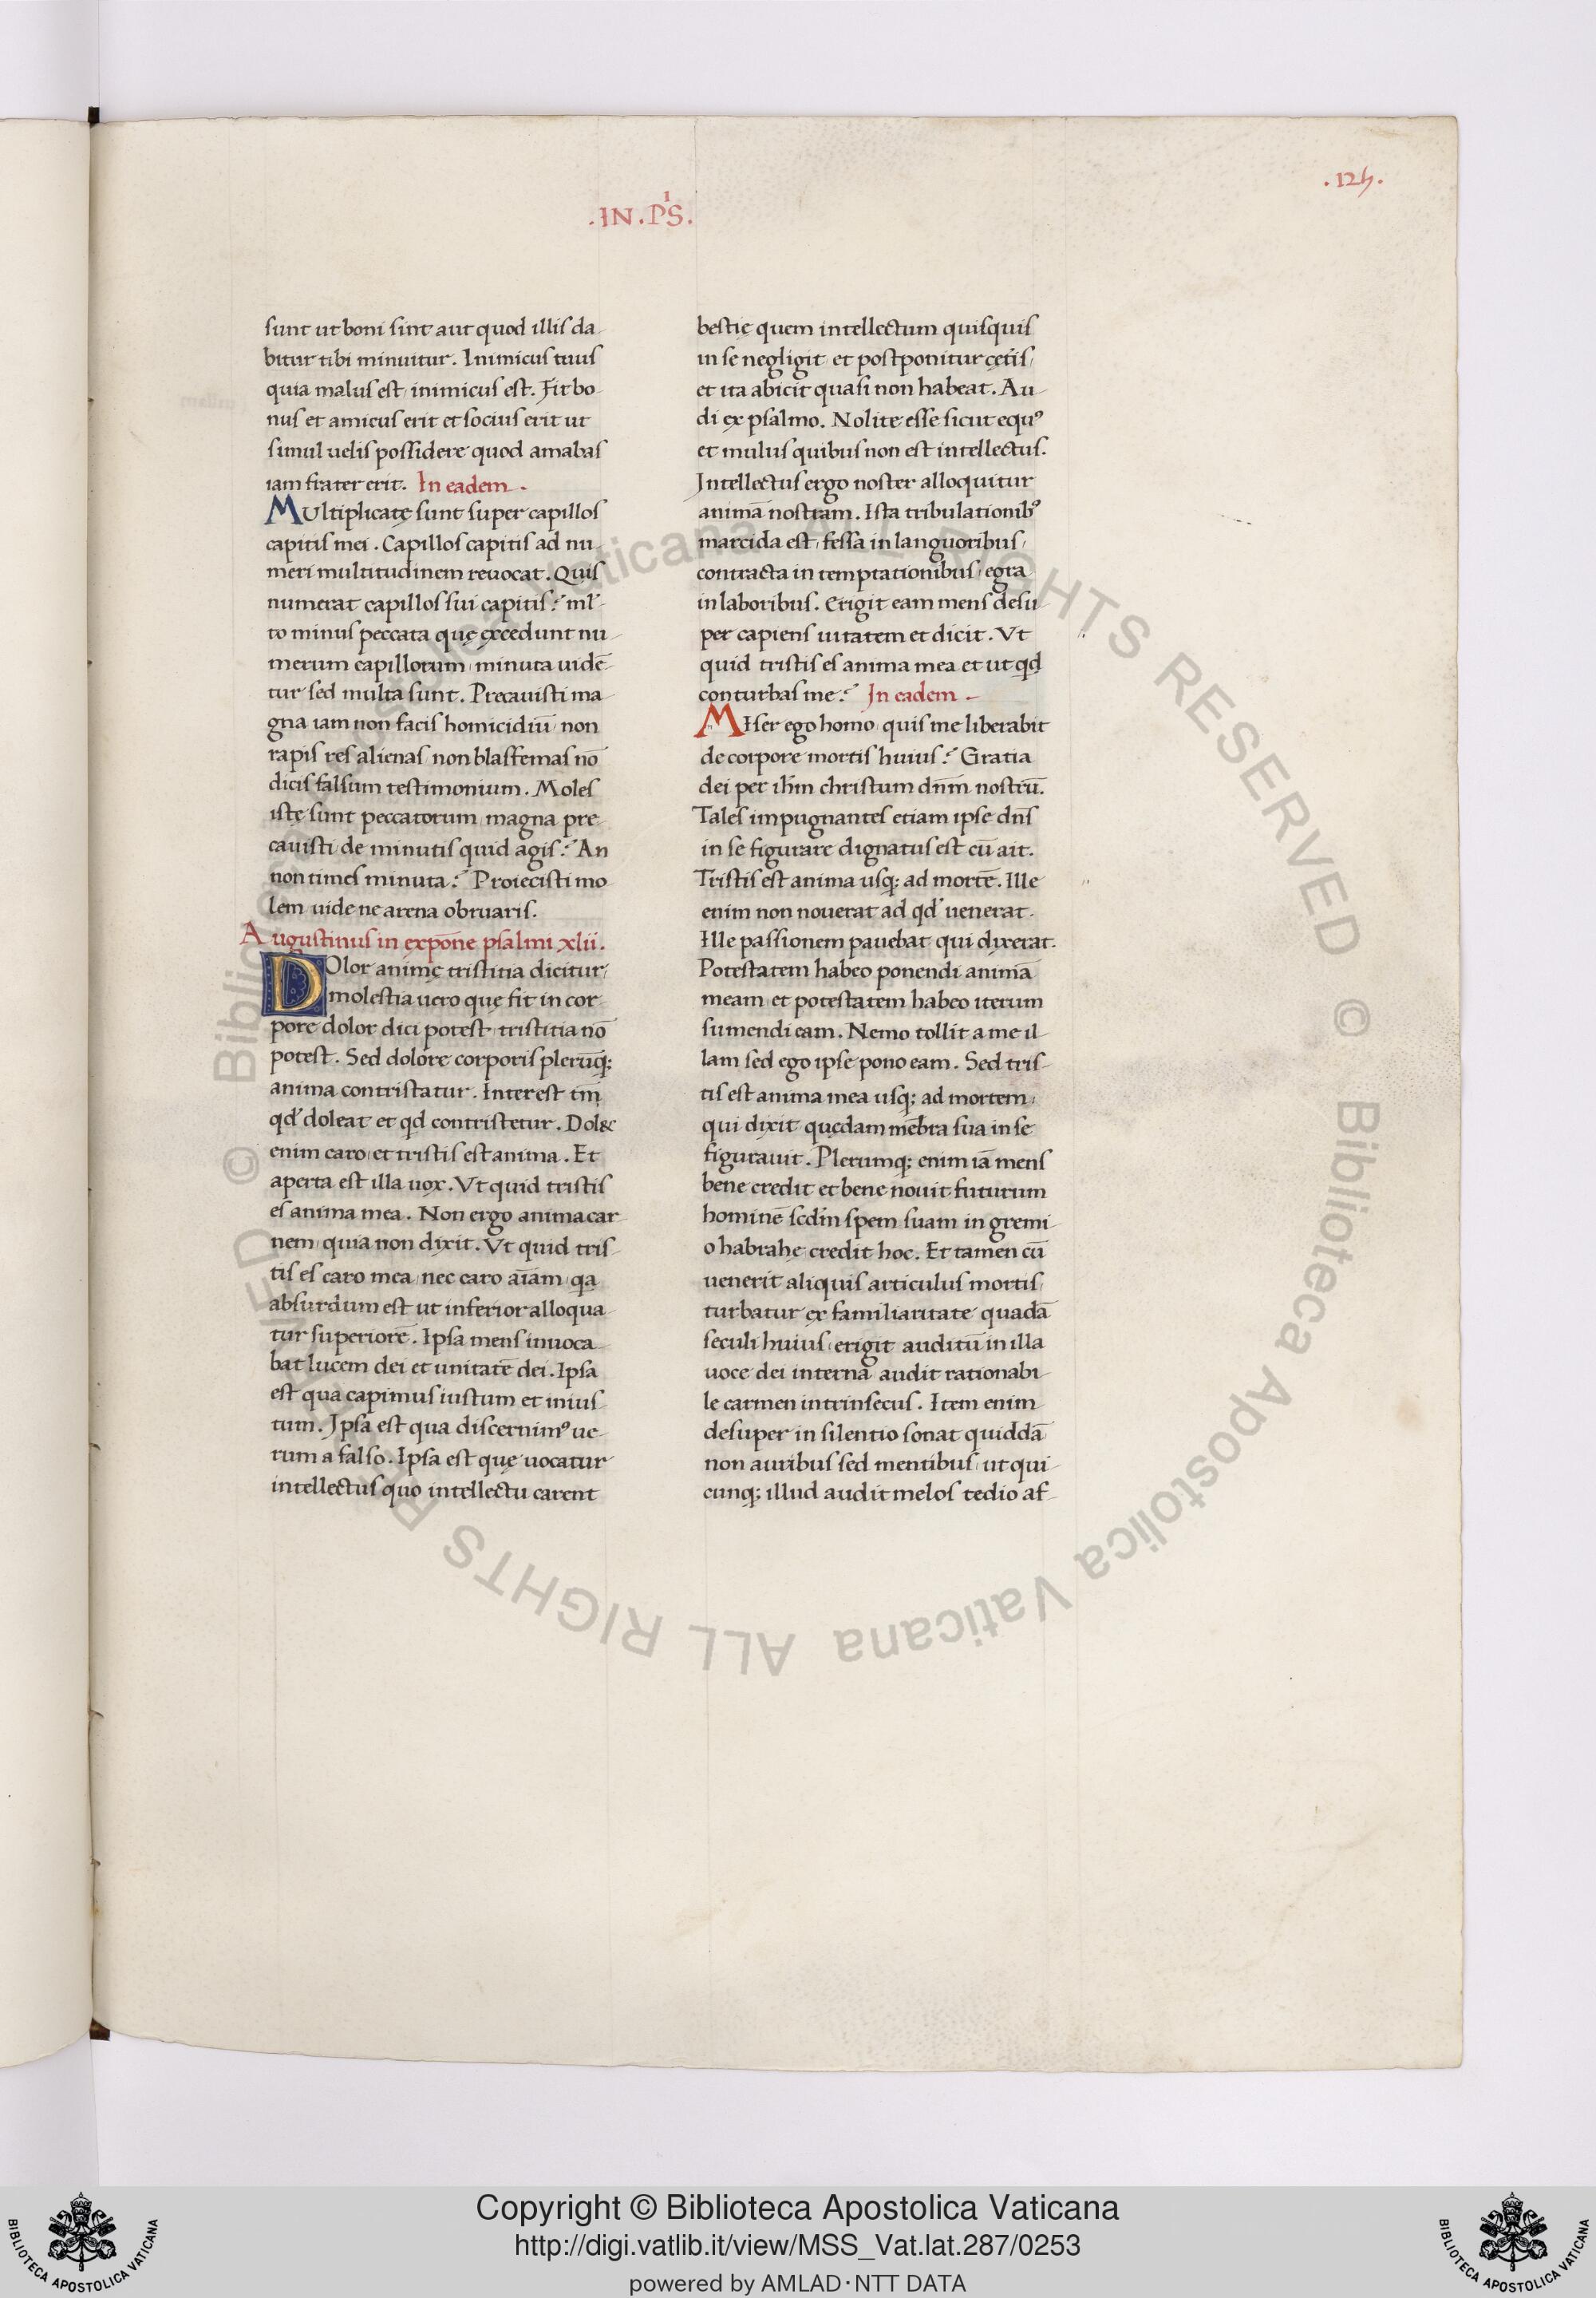 .125.
.IN.PˢS.
sunt ut boni sint aut quod illis da-
bitur tibi minuitur. Inimicus tuus
quia malus est, inimicus est. Fit bo-
nus et amicus erit et socius erit ut
simul uelis possidere quod amabas
iam frater erit. In eadem.
Multiplicatę sunt super capillos
capitis mei. Capillos capitis ad nu-
meri multitudinem reuocat. Quis
numerat capillos sui capitis? ml-
to minus peccata quę excedunt nu-
merum capillorum, minuta uidē-
tur sed multa sunt. Precauisti ma-
gna iam non facis homicidiū, non
rapis res alienas, non blasfemas nō
dicis falsum testimonium. Moles
istę sunt peccatorum, magna pre-
cauisti, de minutis quid agis? An
non times minuta? Proiecisti mo-
lem uide ne arena obruaris.
Augustinus in expōne psalmi xlii.
Dolor animę tristitia dicitur,
molestia uero quę fit in cor-
pore dolor dici potest, tristitia nō
potest. Sed dolore corporis plerūq;
anima contristatur. Interest tm̄
qd' doleat et qd contristetur. Dol&
enim caro, et tristis est anima. Et
aperta est illa uox. Vt quid tristis
es anima mea. Non ergo anima car-
nem, quia non dixit. Vt quid tris-
tis es caro mea, nec caro aīam, qa
absurdum est ut inferior alloqua-
tur superiorē. Ipsa mens inuoca-
bat lucem dei et unitatē dei. Ipsa
est qua capimus iustum et inius-
tum. Ipsa est qua discernimꝰ ue-
rum a falso. Ipsa est quę uocatur
intellectus quo intellectu carent
bestię quem intellectum quisquis
in se negligit, et postponitur cęt̄is,
et ita abicit quasi non habeat. Au-
di ex psalmo. Nolite esse sicut equꝰ
et mulus quibus non est intellectus.
Intellectus ergo noster alloquitur
animā nostram. Ista tribulationibꝰ
marcida est, fessa in languoribus,
contracta in temptationibus, egra
in laboribus. Erigit eam mens desu-
per capiens uitatem et dicit. Vt
quid tristis es anima mea et ut qd
conturbas me? In eadem -
Miser ego homo, quis me liberabit
de corpore mortis huius? Gratia
dei per ihm̄ christum dn̄m nostrū.
Tales impugnantes etiam ipse dn̄s
in se figurare dignatus est cū ait.
Tristis est anima usq; ad mortē. Ille
enim non nouerat ad qd' uenerat.
Ille passionem pauebat, qui dixerat.
Potestatem habeo ponendi animā
meam, et potestatem habeo iterum
sumendi eam. Nemo tollit a me il-
lam sed ego ipse pono eam. Sed tris-
tis est anima mea usq; ad mortem,
qui dixit quędam mēbra sua in se
figurauit. Plerumq; enim iā mens
bene credit et bene nouit futurum
hominē scdm̄ spem suam in gremi-
o habrahę credit hoc. Et tamen cū
uenerit aliquis articulus mortis,
turbatur ex familiaritate quadā
seculi huius, erigit auditū in illa
uoce dei internā audit rationabi-
le carmen intrinsecus. Item enim
desuper in silentio sonat quiddā
non auribus sed mentibus, ut qui-
cunq; illud audit melos tedio af-
© Biblioteca Apostolica Vaticana ALL RIGHTS RESERVED © Biblioteca Apostolica Vaticana ALL RIGHTS RESERVED
Copyright © Biblioteca Apostolica Vaticana
http://digi.vatlib.it/view/MSS_Vat.lat.287/0253
powered by AMLAD·NTT DATA
BIBLIOTECA APOSTOLICA VATICANA
BIBLIOTECA APOSTOLICA VATICANA